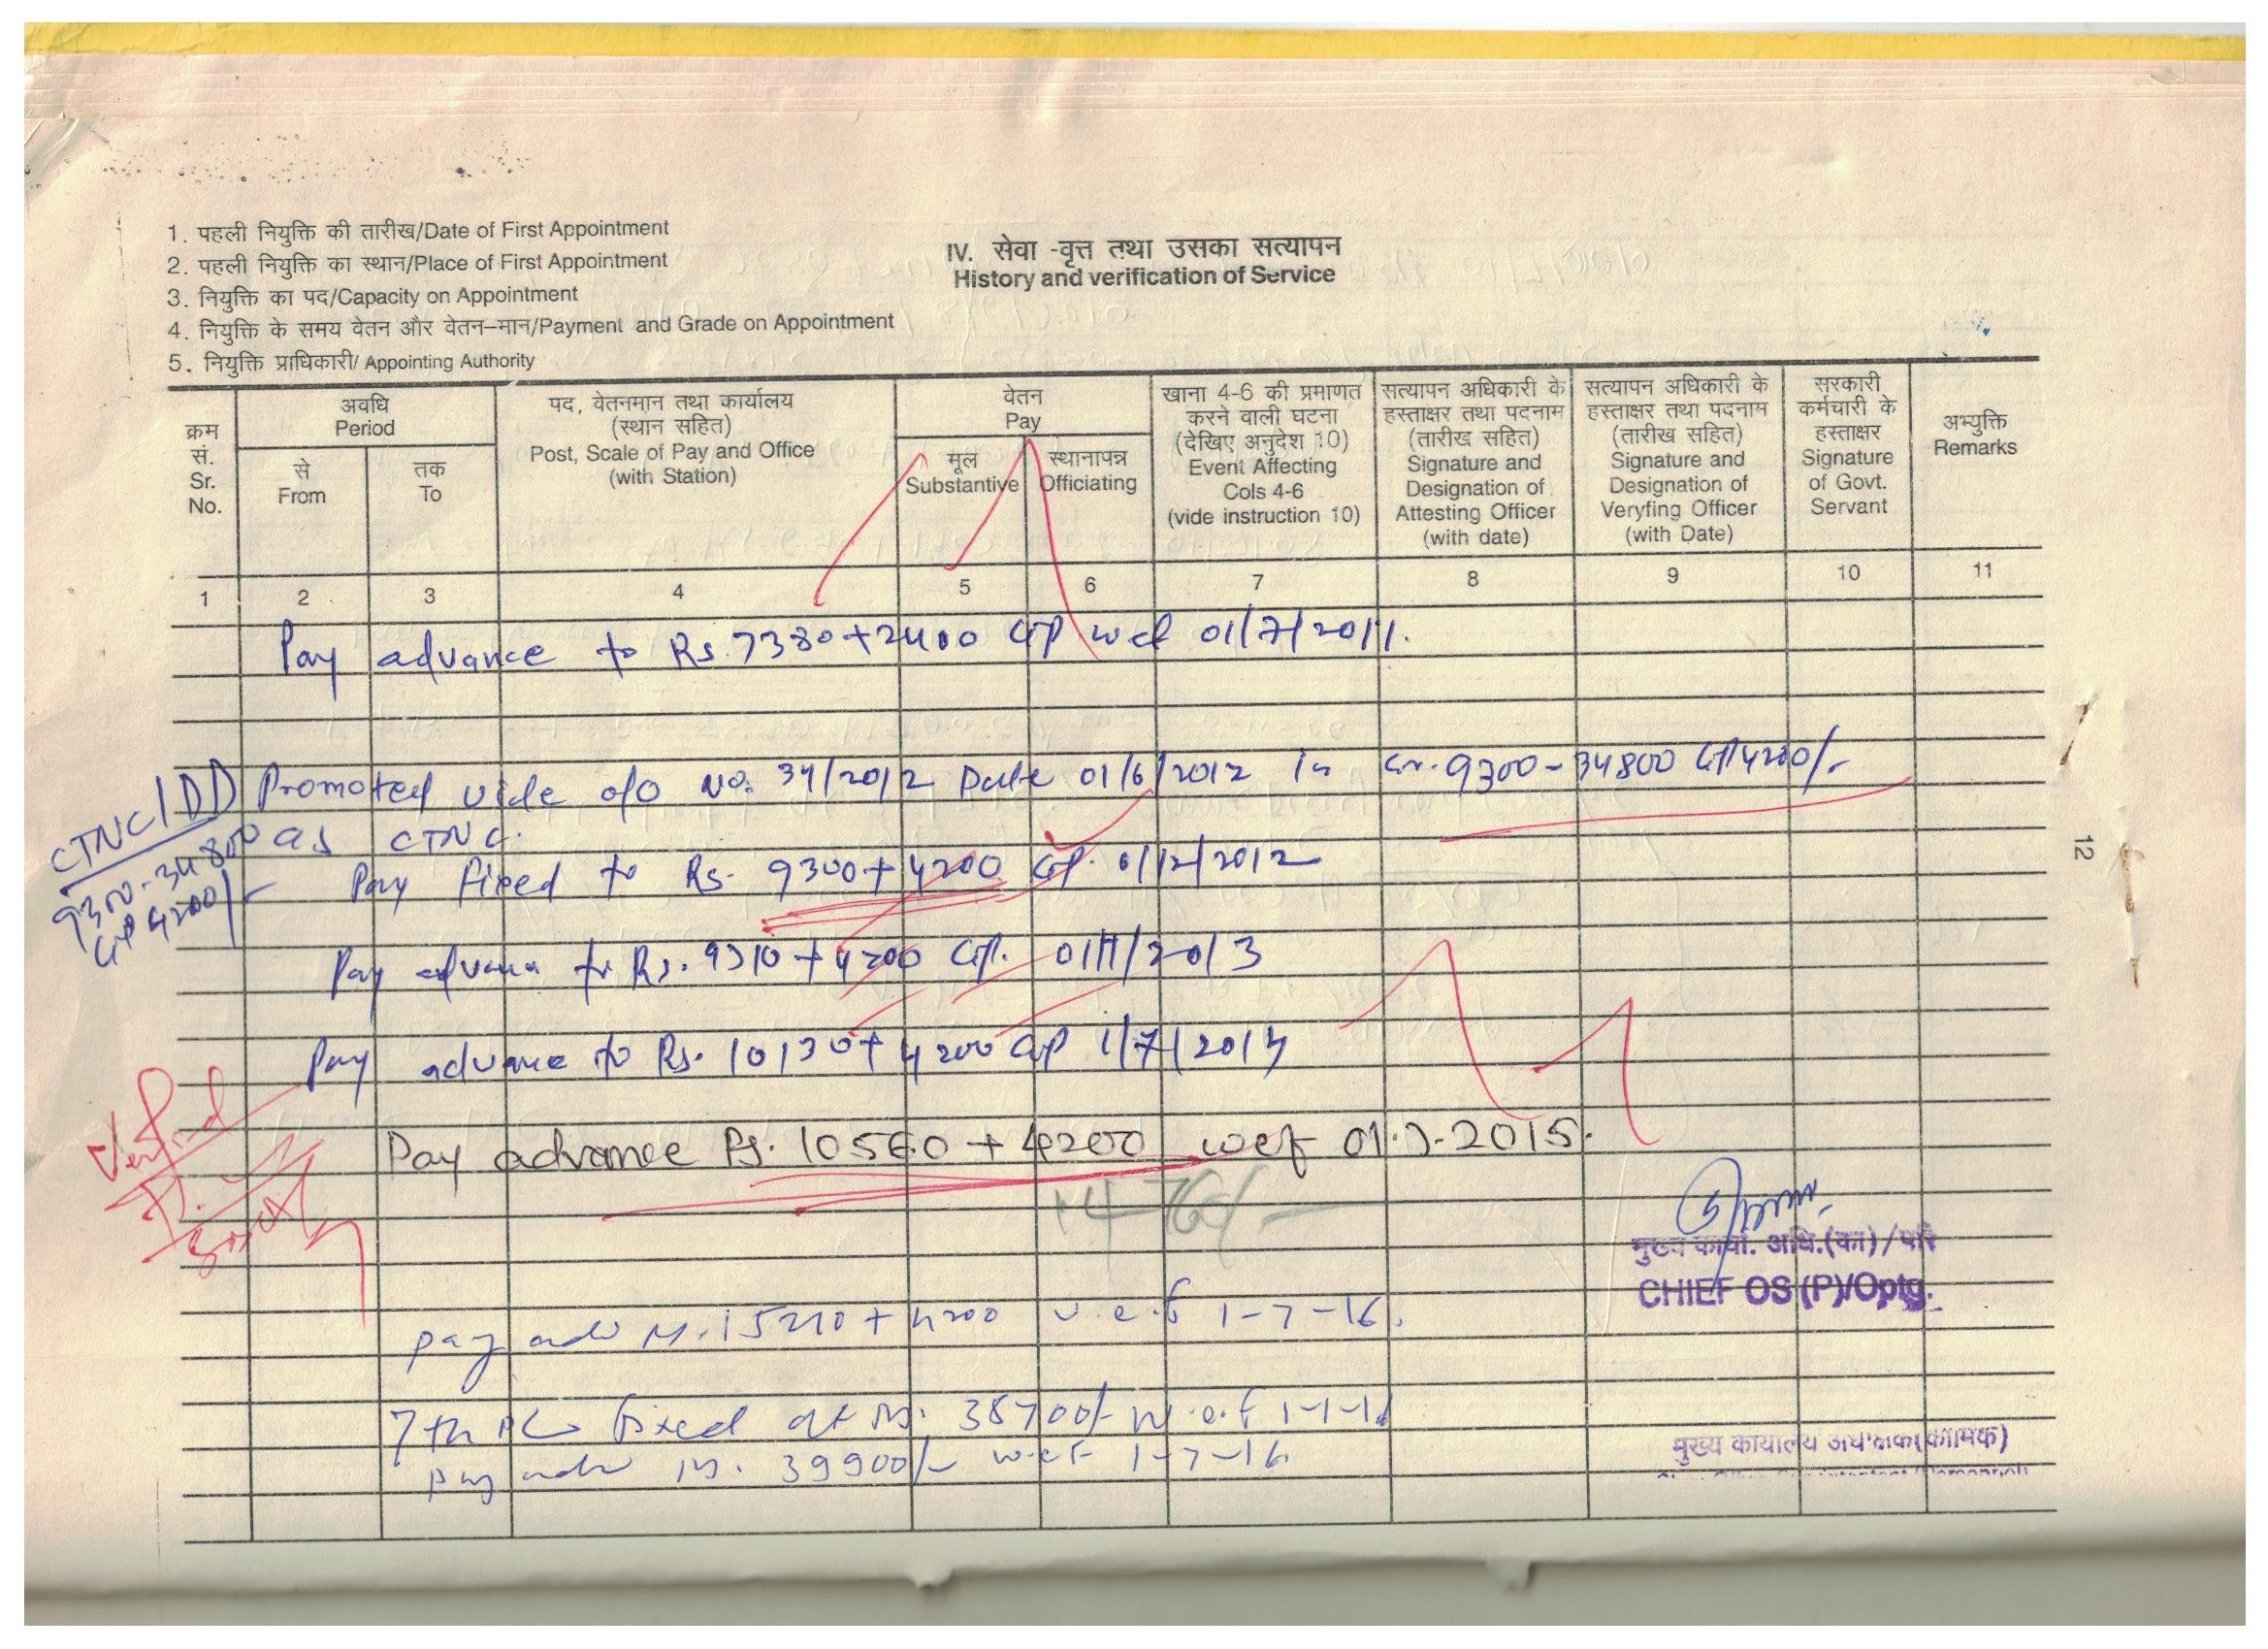 1. पहली नियुक्ति की तारीख/Date of First Appointment
2. पहली नियुक्ति का स्थान/Place of First Appointment
3. नियुक्ति का पद/Capacity on Appointment
4. नियुक्ति के समय वेतन और वेतन-मान/Payment and Grade on Appointment
5. नियुक्ति प्राधिकारी/ Appointing Authority
IV. सेवा -वृत्त तथा उसका सत्यापन
History and verification of Service
क्रम सं. Sr. No.
अवधि Period
से From
तक To
पद, वेतनमान तथा कार्यालय
(स्थान सहित)
Post, Scale of Pay and Office
(with Station)
वेतन
Pay
मूल
Substantive
स्थानापन्न
Officiating
खाना 4-6 की प्रमाणत
करने वाली घटना
(देखिए अनुदेश 10)
Event Affecting
Cols 4-6
(vide instruction 10)
सत्यापन अधिकारी के
हस्ताक्षर तथा पदनाम
(तारीख सहित)
Signature and
Designation of
Attesting Officer
(with date)
सत्यापन अधिकारी के
हस्ताक्षर तथा पदनाम
(तारीख सहित)
Signature and
Designation of
Veryfing Officer
(with Date)
सरकारी
कर्मचारी के
हस्ताक्षर
Signature
of Govt.
Servant
अभ्युक्ति
Remarks
1 2 3 4 5 6 7 8 9 10 11
Pay advance to Rs. 7380+2400 GP wef 01/7/2011.
Promoted vide o/o No. 34/2012 Date 01/6/2012 in Gr. 9300-34800 GP4200/-
as CTNC.
CTNC/DD
9300-34800
GP 4200/-
Pay fixed to Rs. 9300+4200 GP.
Pay advance to Rs. 9710+4200 GP. 01/7/2013
Pay advance to Rs. 10130+4200 GP 1/7/2014
Verified
Pay advance Rs. 10560+4200 wef 01.7.2015.
मुख्य कार्या. अधि.(का)/परि
CHIEF OS (P)/Optg.
12
pay adv Rs. 15210+4200 w.e.f 1-7-16.
7th PC fixed at Rs. 38700/- w.e.f 1-1-16
pay adv Rs. 39900/- wef 1-7-16
मुख्य कार्यालय अधीक्षक(कार्मिक)